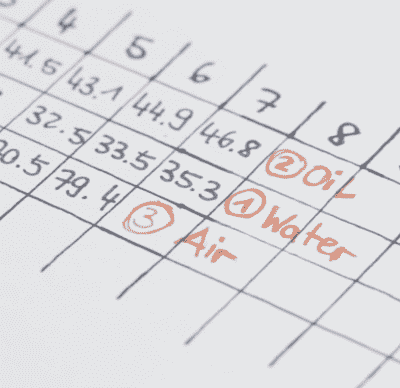 4 5 6 7 8
41.5 43.1 44.9 46.8 ② Oil
32.5 33.5 35.3 ① Water
79.4 ③ Air